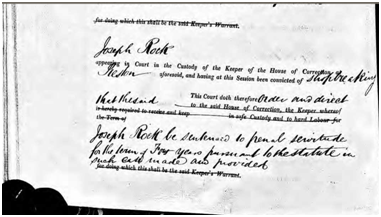 for doing which this shall be the said Keeper's Warrant.
Joseph Rock
appearing in Court in the Custody of the Keeper of the House of Correction
Preston aforesaid, and having at this Session been convicted of shopbreaking
This Court doth therefore Order and direct
that the said to the said House of Correction, the Keeper whereof
is hereby required to receive and keep in safe Custody and to hard Labour for
the Term of
Joseph Rock be sentenced to penal servitude
for the term of Four years pursuant to the statute in
such case made and provided
for doing which this shall be the said Keeper's Warrant.